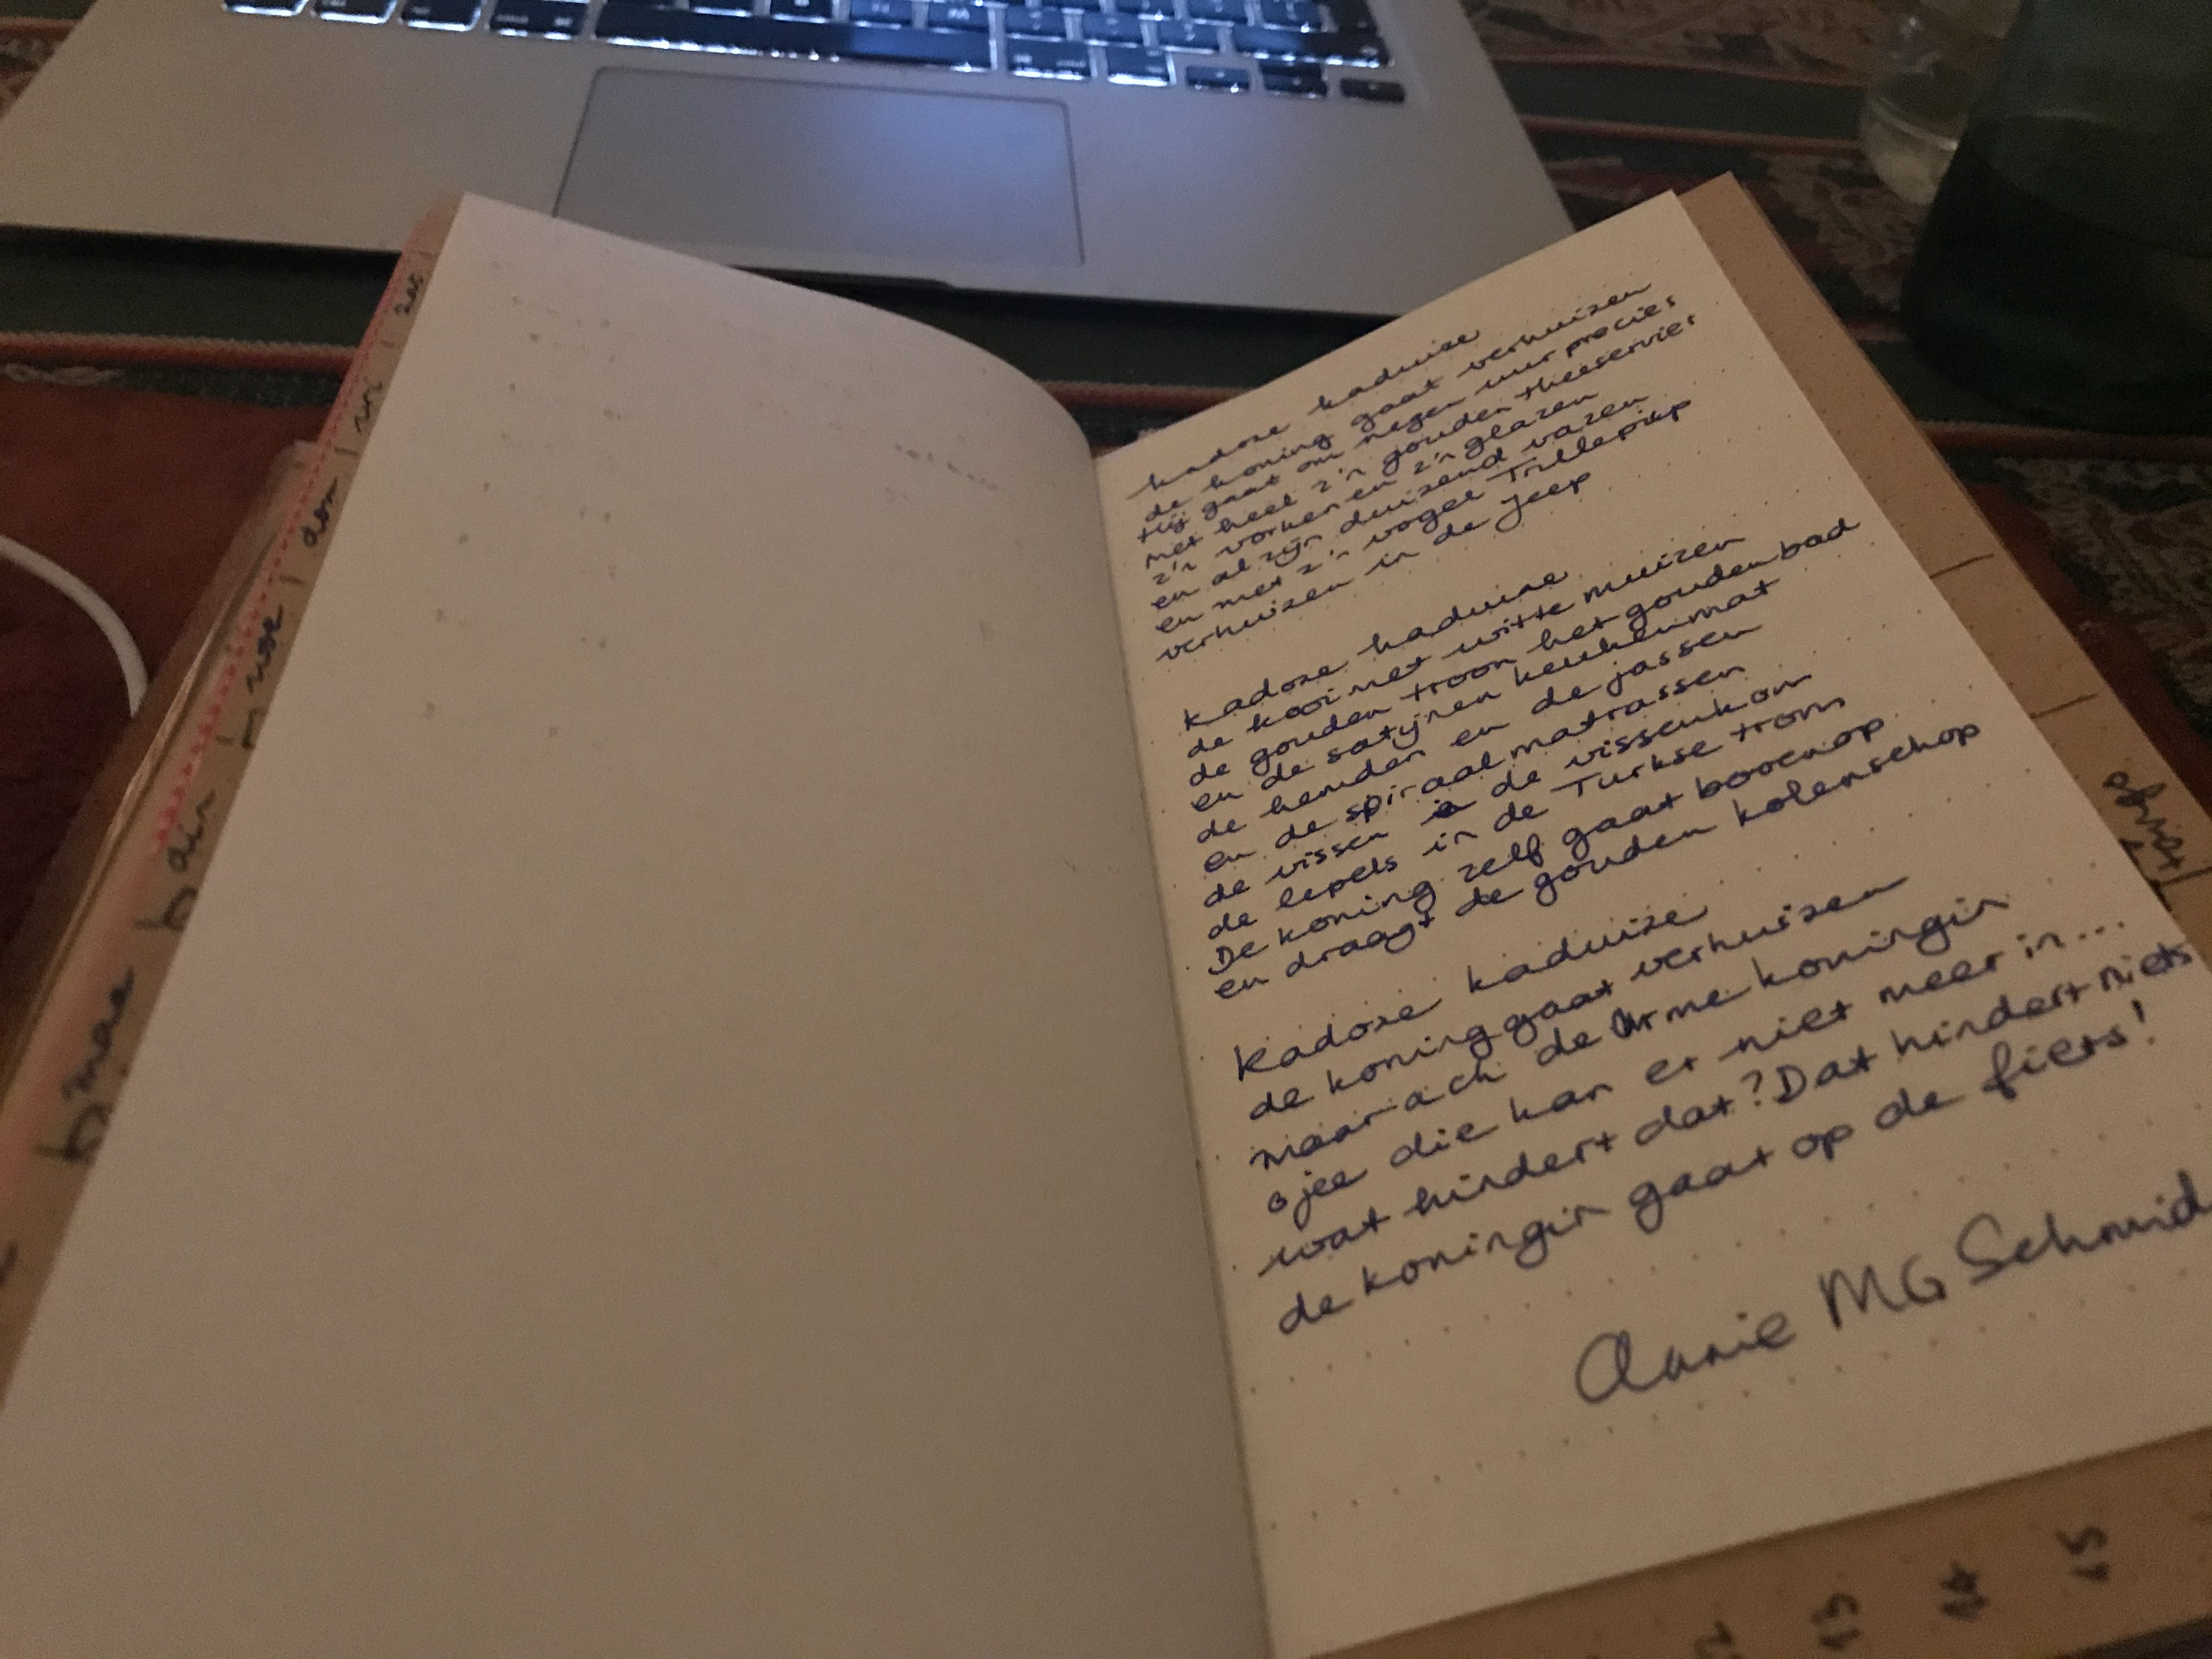 kadoze kaduize
de koning gaat verhuizen
Hij gaat om negen uur precies
met heel z'n gouden theeservies
z'n vorken en z'n glazen
en al zijn duizend vazen
en met z'n vogel Tillepiep
verhuizen in de jeep
Kadoze kaduize
de kooi met witte muizen
de gouden troon het gouden bad
en de satijnen keukenmat
de hemden en de jassen
en de spiraalmatrassen
de vissen in de vissenkom
de lepels in de Turkse trom
De koning zelf gaat bovenop
en draagt de gouden kolenschop
Kadoze kaduize
de koning gaat verhuizen
maar ach de Arme koningin
ojee die kan er niet meer in...
wat hindert dat? Dat hindert niets
de koningin gaat op de fiets!
Annie MG Schmid
mae
din
woe
don
vrij
zat
13
14
15